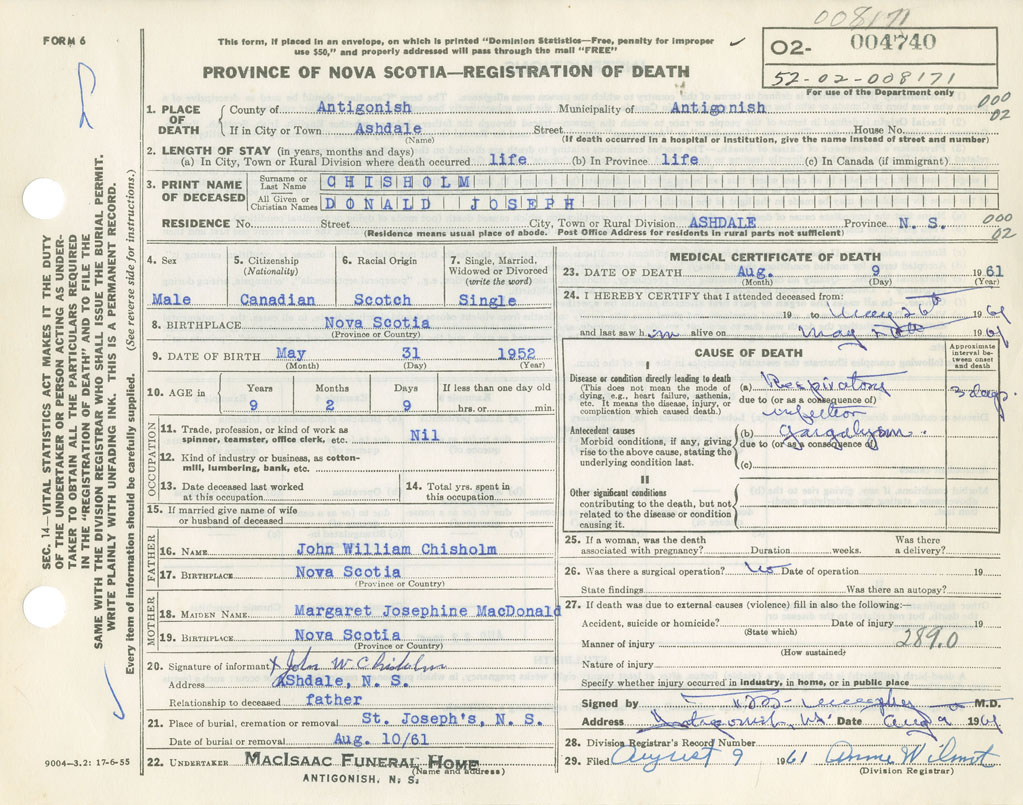 008171
FORM 6
This form, if placed in an envelope, on which is printed "Dominion Statistics—Free, penalty for improper
use $50," and properly addressed will pass through the mail "FREE"
02- 004740
52-02-008171
For use of the Department only
PROVINCE OF NOVA SCOTIA—REGISTRATION OF DEATH
1. PLACE OF DEATH
County of Antigonish Municipality of Antigonish 000
02
If in City or Town Ashdale Street House No.
(Name) (If death occurred in a hospital or institution, give the name instead of street and number)
2. LENGTH OF STAY (in years, months and days)
(a) In City, Town or Rural Division where death occurred life (b) In Province life (c) In Canada (if immigrant)
3. PRINT NAME OF DECEASED
Surname or Last Name CHISHOLM
All Given or Christian Names DONALD JOSEPH
RESIDENCE No. Street City, Town or Rural Division ASHDALE Province N. S. 000
02
(Residence means usual place of abode. Post Office Address for residents in rural parts not sufficient)
4. Sex
Male
5. Citizenship
(Nationality)
Canadian
6. Racial Origin
Scotch
7. Single, Married,
Widowed or Divorced
(write the word)
Single
8. BIRTHPLACE Nova Scotia
(Province or Country)
9. DATE OF BIRTH May 31 1952
(Month) (Day) (Year)
10. AGE in
Years Months Days If less than one day old
9 2 9 hrs. or min.
OCCUPATION
11. Trade, profession, or kind of work as
spinner, teamster, office clerk, etc. Nil
12. Kind of industry or business, as cotton-
mill, lumbering, bank, etc.
13. Date deceased last worked
at this occupation
14. Total yrs. spent in
this occupation
15. If married give name of wife
or husband of deceased
FATHER
16. NAME John William Chisholm
17. BIRTHPLACE Nova Scotia
(Province or Country)
MOTHER
18. MAIDEN NAME Margaret Josephine MacDonald
19. BIRTHPLACE Nova Scotia
(Province or Country)
20. Signature of informant x John W. Chisholm
Address AShdale, N. S.
Relationship to deceased father
21. Place of burial, cremation or removal St. Joseph's, N. S.
Date of burial or removal Aug. 10/61
22. UNDERTAKER MACISAAC FUNERAL HOME
(Name and address)
ANTIGONISH, N. S.
MEDICAL CERTIFICATE OF DEATH
23. DATE OF DEATH Aug. 9 1961
(Month) (Day) (Year)
24. I HEREBY CERTIFY that I attended deceased from:
19 to May 26th 1961
and last saw him alive on May 1961
CAUSE OF DEATH
Approximate
interval be-
tween onset
and death
I
Disease or condition directly leading to death
(This does not mean the mode of
dying, e.g., heart failure, asthenia,
etc. It means the disease, injury, or
complication which caused death.)
(a) Respiratory
due to (or as a consequence of)
infection
3 days
Antecedent causes
Morbid conditions, if any, giving
rise to the above cause, stating the
underlying condition last.
(b) Gargalysm.
due to (or as a consequence of)
(c)
II
Other significant conditions
contributing to the death, but not
related to the disease or condition
causing it.
25. If a woman, was the death
associated with pregnancy? Duration weeks. Was there
a delivery?
26. Was there a surgical operation? No Date of operation 19
State findings Was there an autopsy?
27. If death was due to external causes (violence) fill in also the following:—
Accident, suicide or homicide? Date of injury 19
(State which)
Manner of injury 289.0
(How sustained)
Nature of injury
Specify whether injury occurred in industry, in home, or in public place
Signed by M.D.
Address Antigonish, NS Date Aug 9 1961
28. Division Registrar's Record Number
29. Filed August 9 1961 Anne Wilmot
(Division Registrar)
SEC. 14—VITAL STATISTICS ACT MAKES IT THE DUTY
OF THE UNDERTAKER OR PERSON ACTING AS UNDER-
TAKER TO OBTAIN ALL THE PARTICULARS REQUIRED
IN THE "REGISTRATION OF DEATH" AND TO FILE THE
SAME WITH THE DIVISION REGISTRAR WHO SHALL ISSUE THE BURIAL PERMIT.
WRITE PLAINLY WITH UNFADING INK. THIS IS A PERMANENT RECORD.
Every item of information should be carefully supplied. (See reverse side for instructions.)
9004—3.2: 17-6-55